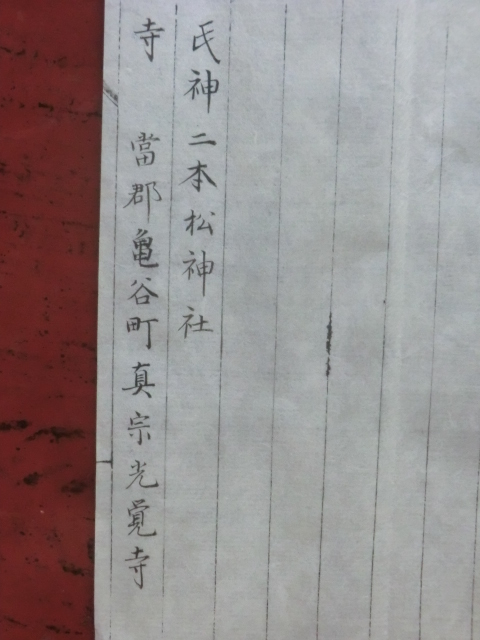 氏神二本松神社
寺 當郡亀谷町真宗光覚寺